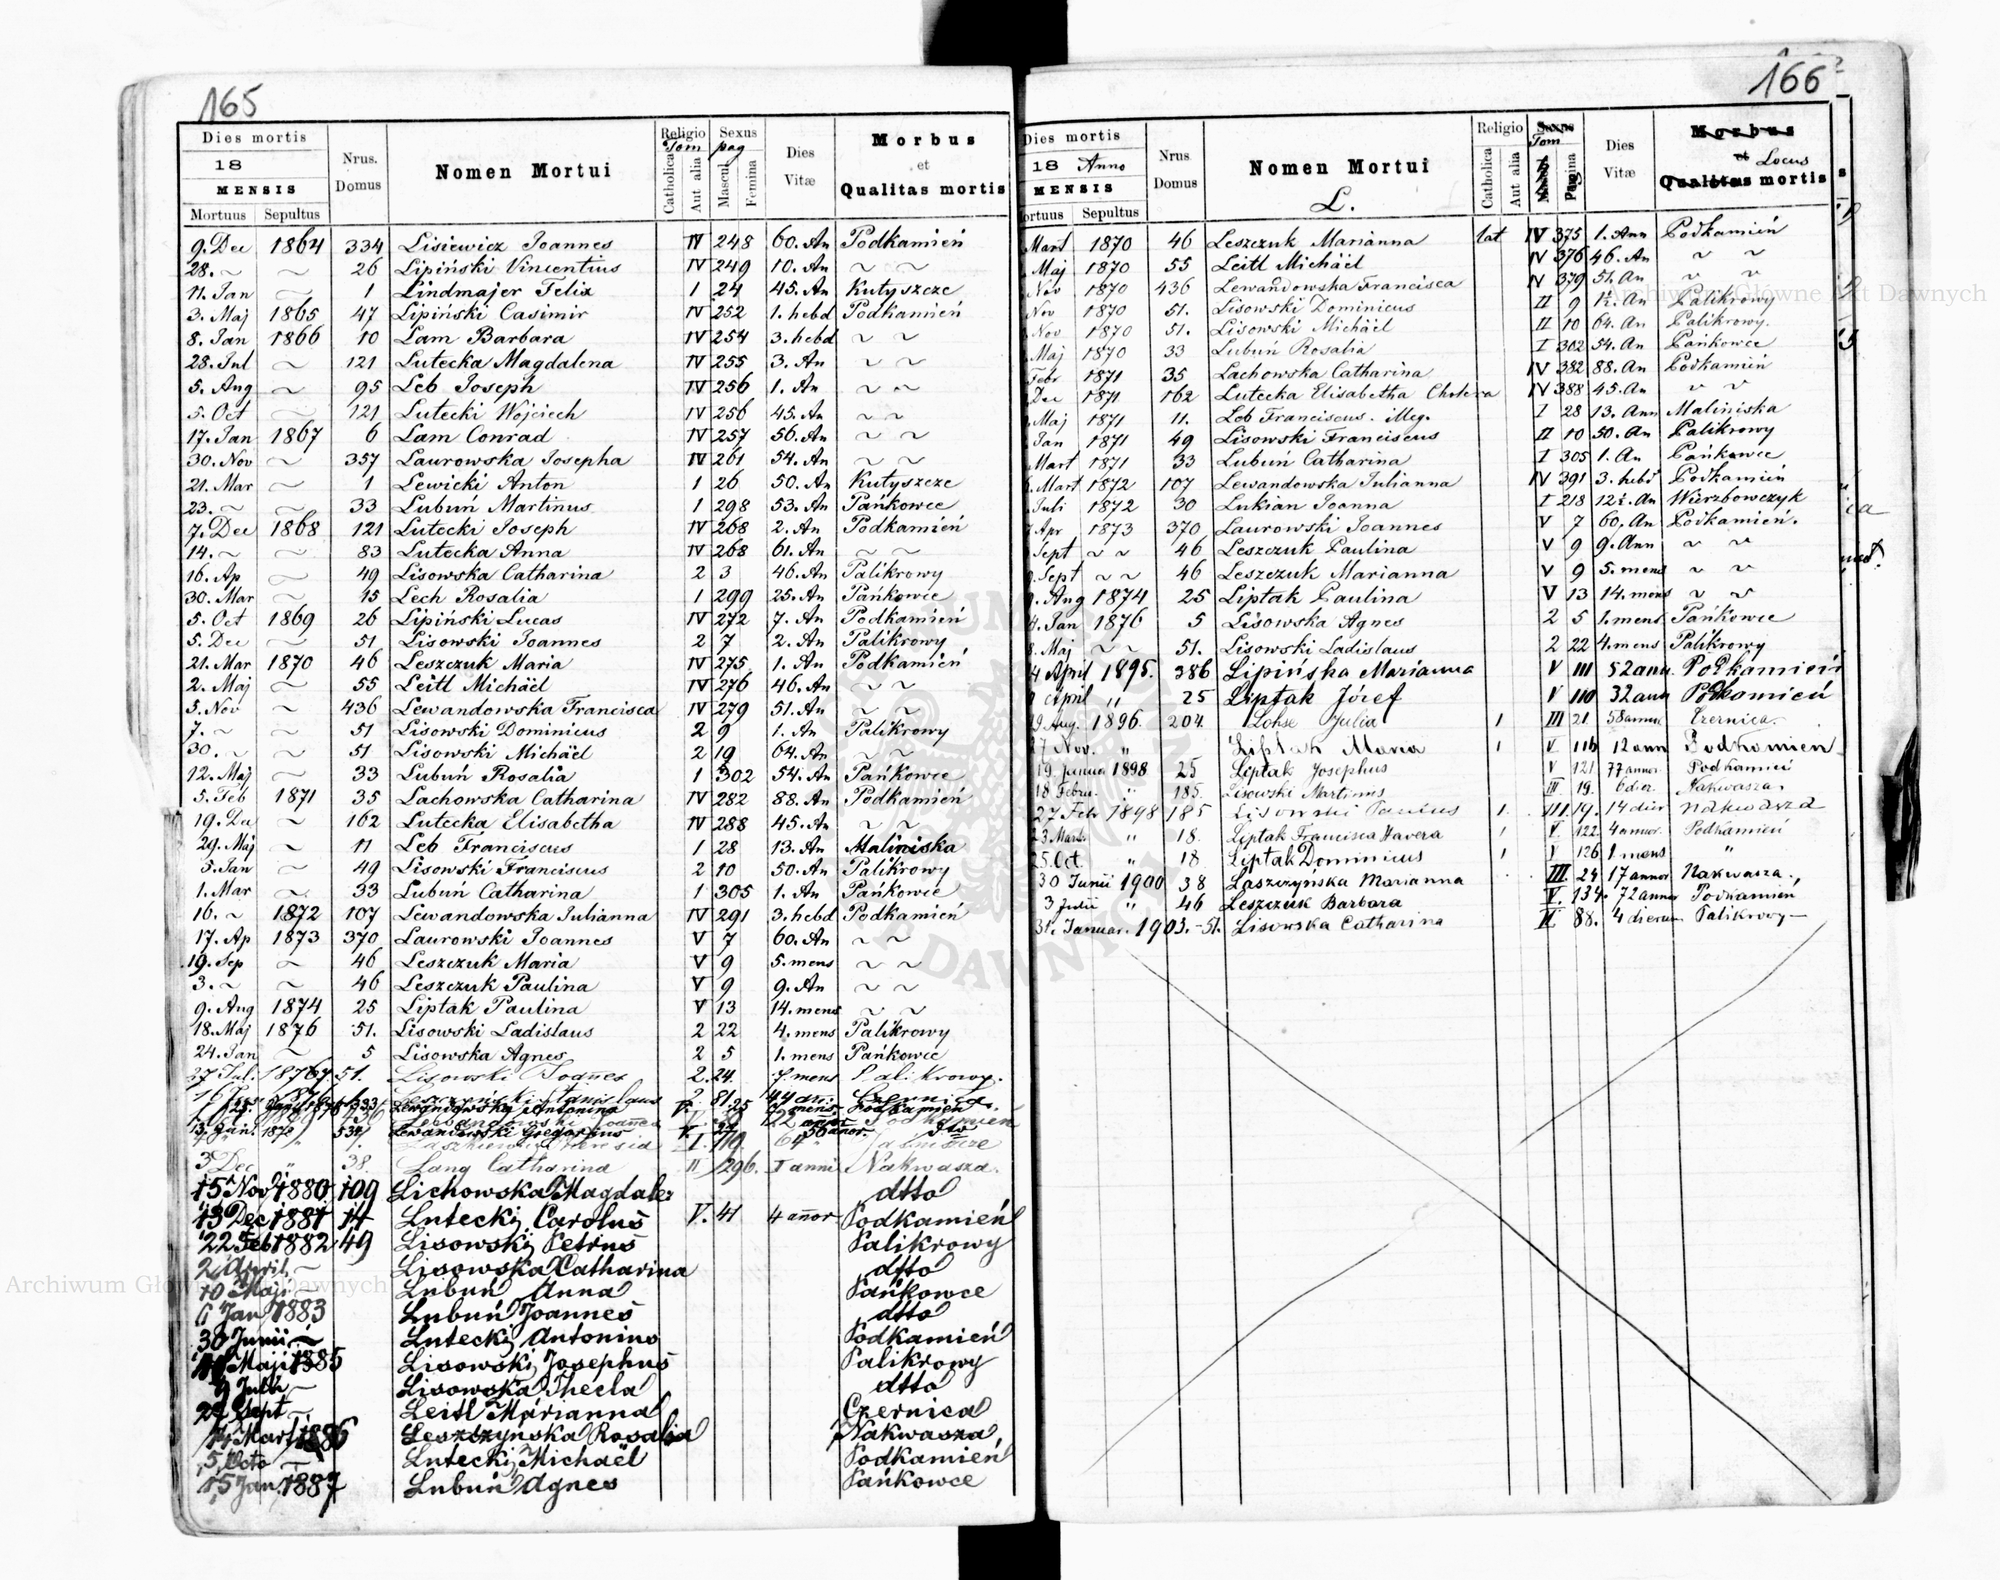 165
Dies mortis
18
MENSIS
Mortuus Sepultus
Nrus. Domus
Nomen Mortui
Religio Tom
Catholica Aut alia
Sexus pag
Mascul. Femina
Dies Vitæ
Morbus et Qualitas mortis
9. Dec 1864 334 Lisiewicz Joannes IV 248 60. An Podkamień
28. ~ ~ 26 Lipiński Vincentius IV 249 10. An ~ ~
11. Jan ~ 1 Lindmajer Felix 1 24 45. An Kutyszcze
3. Maj 1865 47 Lipiński Casimir IV 252 1. hebd Podkamień
8. Jan 1866 10 Lam Barbara IV 254 3. hebd ~ ~
28. Jul ~ 121 Lutecka Magdalena IV 255 3. An ~ ~
5. Aug ~ 95 Leb Joseph IV 256 1. An ~ ~
5. Oct ~ 121 Lutecki Wojciech IV 256 45. An ~ ~
17. Jan 1867 6 Lam Conrad IV 257 56. An ~ ~
30. Nov ~ 357 Laurowska Josepha IV 261 54. An ~ ~
21. Mar ~ 1 Lewicki Anton 1 26 50. An Kutyszcze
23. ~ ~ 33 Lubuń Martinus 1 298 53. An Pańkowce
7. Dec 1868 121 Lutecki Joseph IV 268 2. An Podkamień
14. ~ ~ 83 Lutecka Anna IV 268 61. An ~ ~
16. Ap ~ 49 Lisowska Catharina 2 3 46. An Palikrowy
30. Mar ~ 15 Lech Rosalia 1 299 25. An Pańkowce
5. Oct 1869 26 Lipiński Lucas IV 272 7. An Podkamień
5. Dec ~ 51 Lisowski Joannes 2 7 2. An Palikrowy
21. Mar 1870 46 Leszczuk Maria IV 275 1. An Podkamień
2. Maj ~ 55 Leitl Michäel IV 276 46. An ~ ~
5. Nov ~ 436 Lewandowska Francisca IV 279 51. An ~ ~
7. ~ ~ 51 Lisowski Dominicus 2 9 1. An Palikrowy
30. ~ ~ 51 Lisowski Michäel 2 19 64. An ~ ~
12. Maj ~ 33 Lubuń Rosalia 1 302 54. An Pańkowce
5. Feb 1871 35 Lachowska Catharina IV 282 88. An Podkamień
19. Dec ~ 162 Lutecka Elisabetha IV 288 45. An ~ ~
29. Maj ~ 11 Leb Franciscus 1 28 13. An Maliniska
5. Jan ~ 49 Lisowski Franciscus 2 10 50. An Palikrowy
1. Mar ~ 33 Lubuń Catharina 1 305 1. An Pańkowce
16. ~ 1872 107 Lewandowska Julianna IV 291 3. hebd Podkamień
17. Ap 1873 370 Laurowski Joannes V 7 60. An ~ ~
19. Sep ~ 46 Leszczuk Maria V 9 5. mens ~ ~
3. ~ ~ 46 Leszczuk Paulina V 9 9. An ~ ~
9. Aug 1874 25 Liptak Paulina V 13 14. mens ~ ~
18. Maj 1876 51. Lisowski Ladislaus 2 22 4. mens Palikrowy
24. Jan ~ 5 Lisowska Agnes 2 5 1. mens Pańkowce
27 Jul. 1876 51. Lisowski Joannes 2. 24. 7. mens Palikrowy.
Stanislaus 2. 81. 44 an. Czernica.
Lewandowska Antonina V. 25 mens Podkamień
Podkamień
Lewandowski Gregorius V. 56 annor. dto
3 Dec " 38. Lang Catharina II 296. 1 anni Nakwasza.
15 Nov 1880 109 Lichowska Magdale dtto
13 Dec 1881 14 Lutecki Carolus V. 41 4 añor Podkamień
22 Feb 1882 49 Lisowski Petrus Palikrowy
2 April ~ Lisowska Catharina dtto
10 Maji ~ Lubuń Anna Pańkowce
6 Jan 1883 Lubuń Joannes dtto
30 Junii ~ Lutecki Antonino Podkamień
Maji 1885 Lisowski Josephus Palikrowy
9 Julii ~ Lisowska Thecla dtto
24 Sept ~ Leitl Marianna Czernica
14 Mart 1886 Leszczynska Rosalia Nakwasza
5 Octo ~ Lutecki Michaël Podkamień
15 Jan 1887 Lubuń Agnes Pańkowce
166
Dies mortis
18 Anno
MENSIS
ortuus Sepultus
Nrus. Domus
Nomen Mortui
L.
Religio
Catholica Aut alia
Sexus Tom
Pagina
Dies Vitæ
Morbus et Locus
Qualitas mortis
Mart 1870 46 Leszczuk Marianna lat IV 375 1. Ann Podkamień
Maj 1870 55 Leitl Michäel IV 376 46. An ~ ~
Nov 1870 436 Lewandowska Francisca IV 379 51. An ~ ~
Nov 1870 51. Lisowski Dominicus II 9 1½. An Palikrowy
Nov 1870 51. Lisowski Michäel II 10 64. An Palikrowy.
Maj 1870 33 Lubuń Rosalia I 302 54. An Pańkowce
Febr 1871 35 Lachowska Catharina IV 382 88. An Podkamień
Dec 1871 162 Lutecka Elisabetha Cholera IV 388 45. An ~ ~
Maj 1871 11. Leb Franciscus. illeg. I 28 13. Ann Maliniska
Jan 1871 49 Lisowski Franciscus II 10 50. An Palikrowy
Mart 1871 33 Lubuń Catharina I 305 1. An Pańkowce
Mart 1872 107 Lewandowska Julianna IV 391 3. hebd Podkamień
Juli 1872 30 Lukian Joanna I 218 12½. An Wierzbowczyk
Apr 1873 370 Laurowski Joannes V 7 60. An Podkamień.
Sept ~ ~ 46 Leszczuk Paulina V 9 9. Ann ~ ~
Sept ~ ~ 46 Leszczuk Marianna V 9 5. mens ~ ~
Aug 1874 25 Liptak Paulina V 13 14. mens ~ ~
Jan 1876 5 Lisowska Agnes 2 5 1. mens Pańkowce
Maj ~ ~ 51. Lisowski Ladislaus 2 22 4. mens Palikrowy
4 April 1895. 386 Lipińska Marianna V 111 52 ann Podkamień
April " 25 Liptak Józef V 110 32 ann Podkamień
19 Aug. 1896. 204. Lohse Julia 1 III 21. 58 annor Czernica.
27 Nov. " Liptak Maria 1 V 116 12 ann Podkamien
19. Januar 1898 25 Liptak Josephus V 121 77 annor. Podkamień
18 Febru. " 185. Lisowski Martinus III 19. 6 dier. Nakwasza.
27 Feb 1898 185 Lisowski Paulus 1. III. 19. 14 dier Nakwasza
23. Mart. " 18. Liptak Francisca Xavera 1 V. 122. 4 annor. Podkamień
25. Oct. " 18 Liptak Dominicus 1 V 126 1. mens "
30 Junii 1900 38 Laszczyńska Marianna III. 24 17 annor. Nakwasza.
3 Julii " 46 Leszczuk Barbara V. 134. 72 annor Podkamień
31. Januar. 1903. 51. Lisowska Catharina II. 88. 4 dierum Palikrowy
Archiwum Główne Akt Dawnych
Archiwum Główne Akt Dawnych